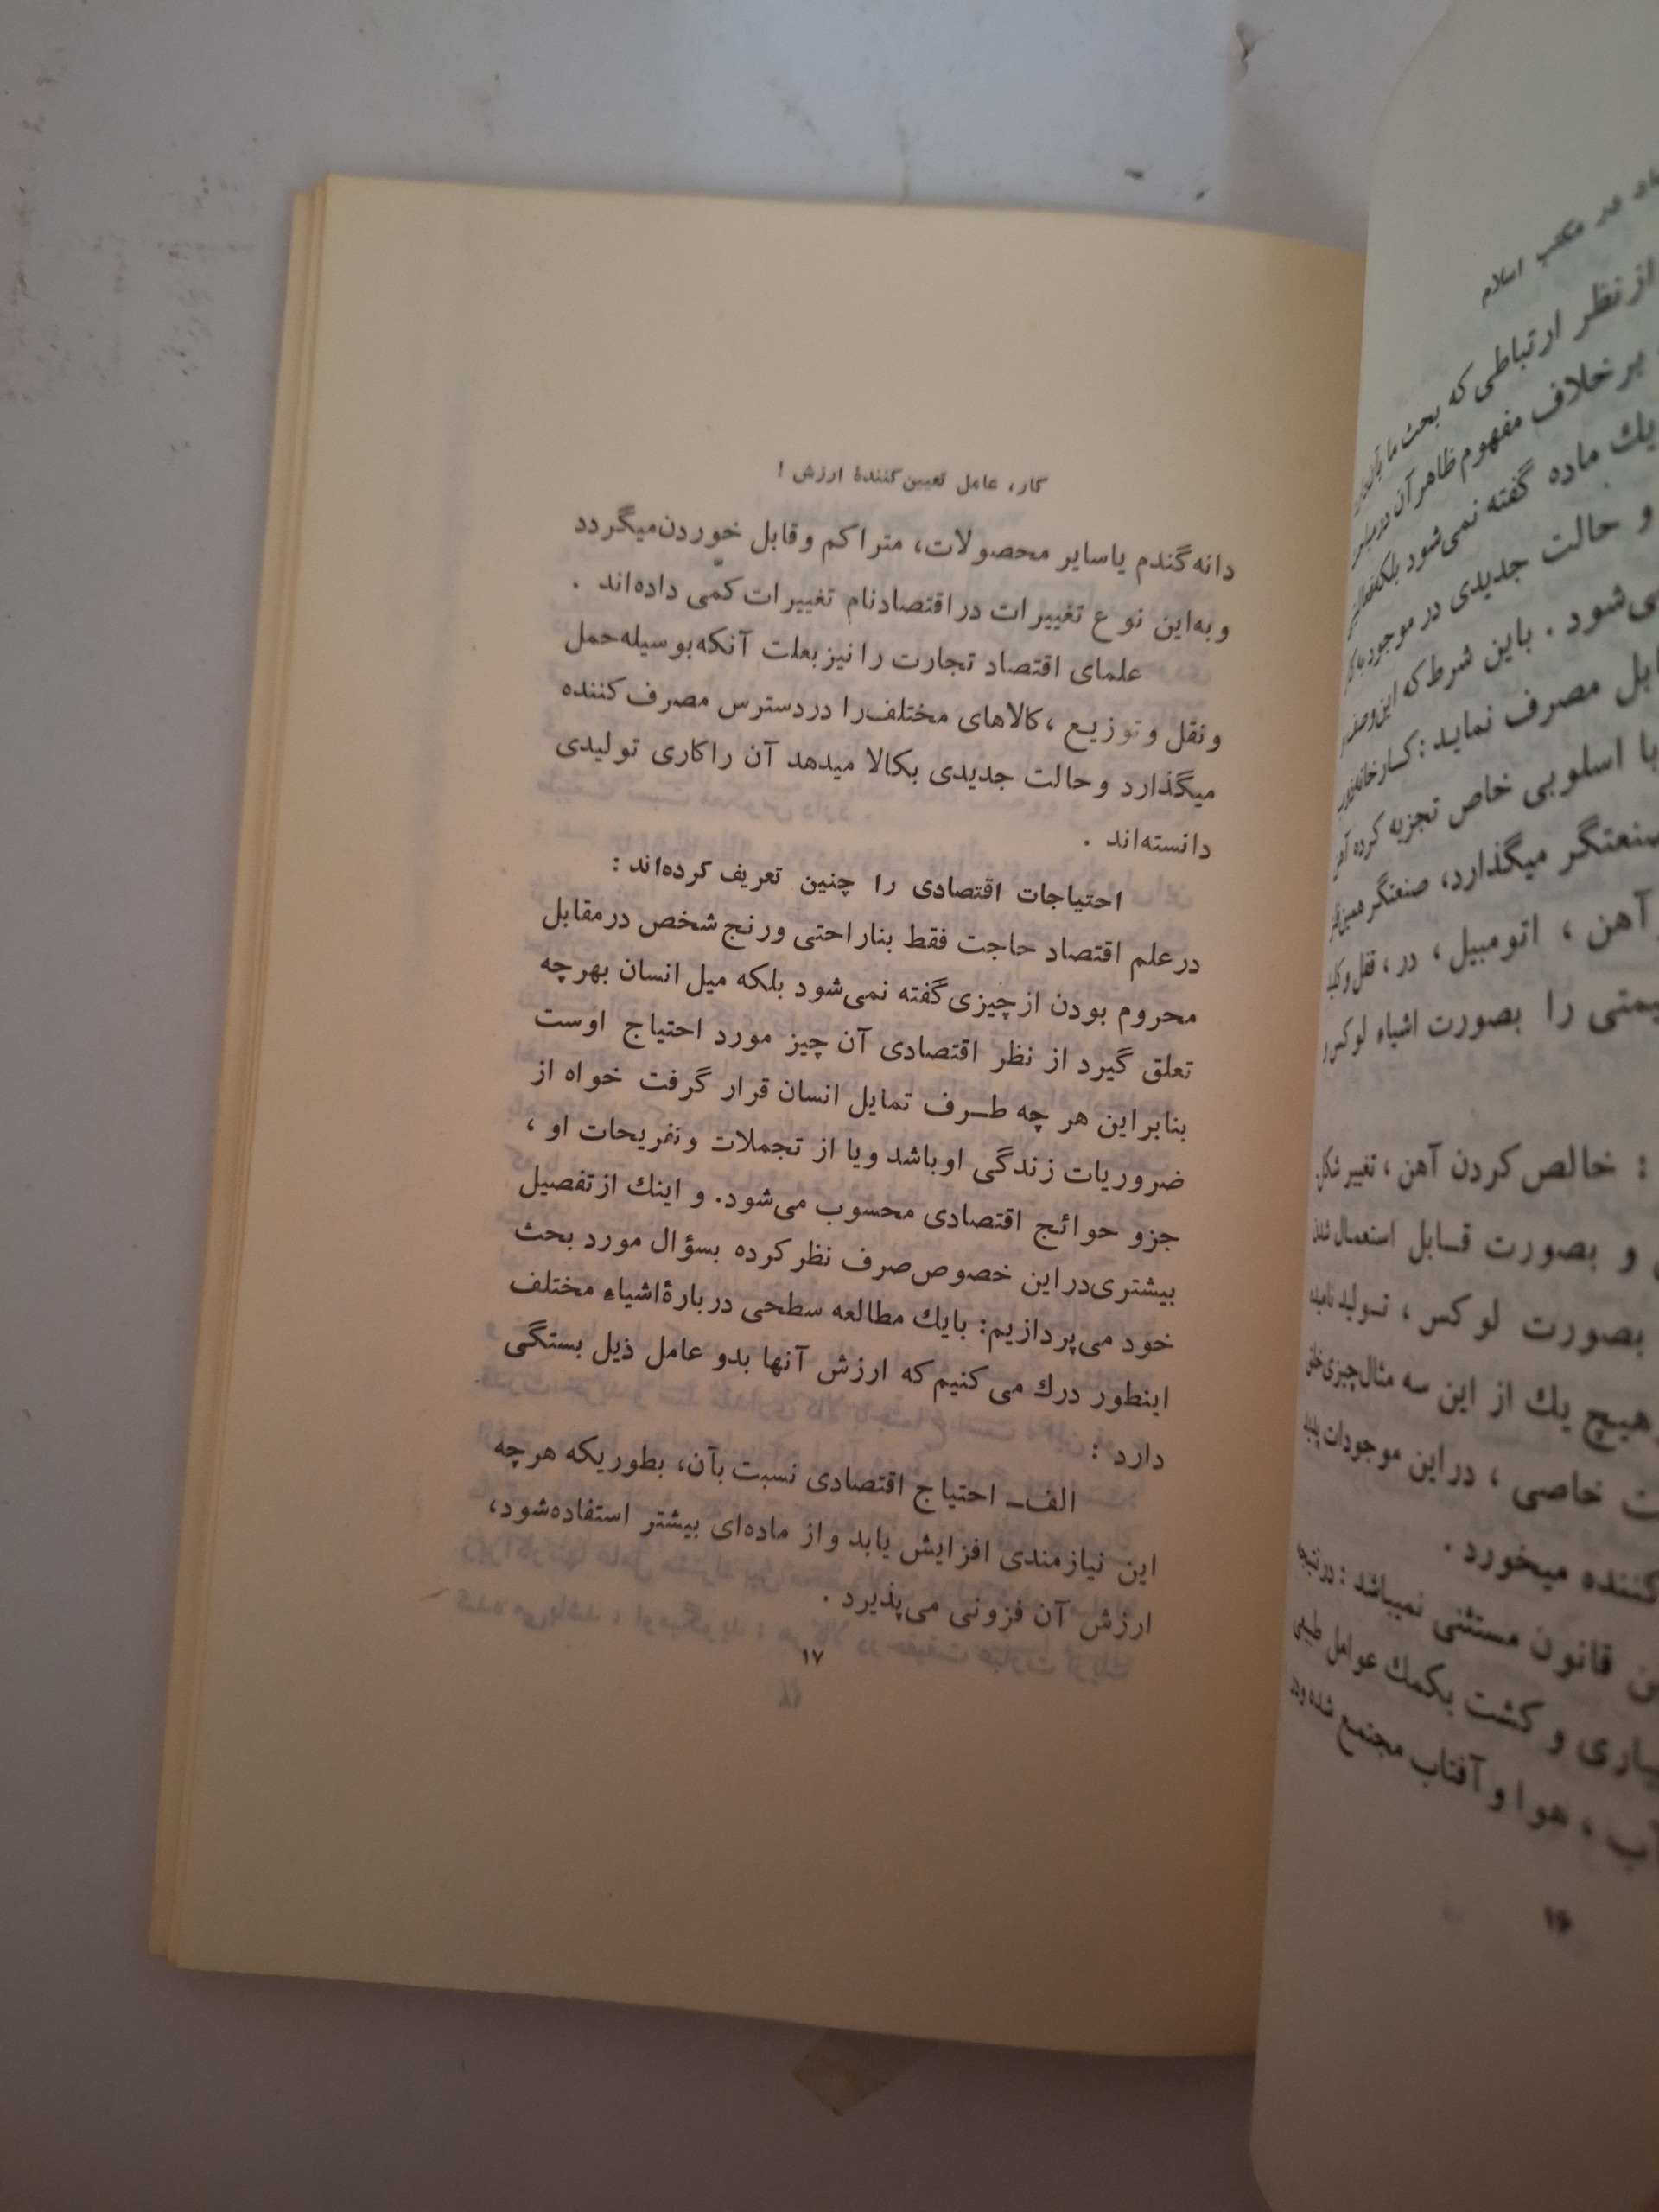 کار، عامل تعیین‌کنندهٔ ارزش !
دانه گندم یا سایر محصولات، متراکم و قابل خوردن میگردد
و به‌این نوع تغییرات در اقتصاد نام تغییرات کمّی داده‌اند .
علمای اقتصاد تجارت را نیز بعلت آنکه بوسیله حمل
و نقل و توزیع ، کالاهای مختلف را در دسترس مصرف کننده
میگذارد و حالت جدیدی بکالا میدهد آن را کاری تولیدی
دانسته‌اند .
احتیاجات اقتصادی را چنین تعریف کرده‌اند :
در علم اقتصاد حاجت فقط بناراحتی و رنج شخص در مقابل
محروم بودن از چیزی گفته نمی‌شود بلکه میل انسان بهر چه
تعلق گیرد از نظر اقتصادی آن چیز مورد احتیاج اوست
بنابراین هر چه طـرف تمایل انسان قرار گرفت خواه از
ضروریات زندگی او باشد و یا از تجملات و تفریحات او ،
جزو حوائج اقتصادی محسوب می‌شود. و اینك از تفصیل
بیشتری در این خصوص صرف نظر کرده بسؤال مورد بحث
خود می‌پردازیم: بایك مطالعه سطحی دربارهٔ اشیاء مختلف
اینطور درك می کنیم که ارزش آنها بدو عامل ذیل بستگی
دارد :
الف‌ـ احتیاج اقتصادی نسبت بآن، بطوریکه هر چه
این نیازمندی افزایش یابد و از ماده‌ای بیشتر استفاده شود،
ارزش آن فزونی می‌پذیرد .
۱۷
در مکتب اسلام
از نظر ارتباطی که بحث ما
برخلاف مفهوم ظاهر آن
یك ماده گفته نمی‌شود بلکه
و حالت جدیدی در موجود
می‌شود . باین شرط که این وصف
مصرف نماید : کارخانه
با اسلوبی خاص تجزیه کرده
صنعتگر میگذارد، صنعتگر
آهن ، اتومبیل ، در ، قفل و
را بصورت اشیاء لوکس و
: خالص کردن آهن ، تغییر شکل
و بصورت قـابل استعمال
بصورت لوکس ، تـولید
هیچ یك از این سه مثال چیزی
خاصی ، در این موجودات
کننده میخورد .
قانون مستثنی نمیباشد :
و کشت بکمك عوامل
آب ، هوا و آفتاب مجتمع شده و
۱۶